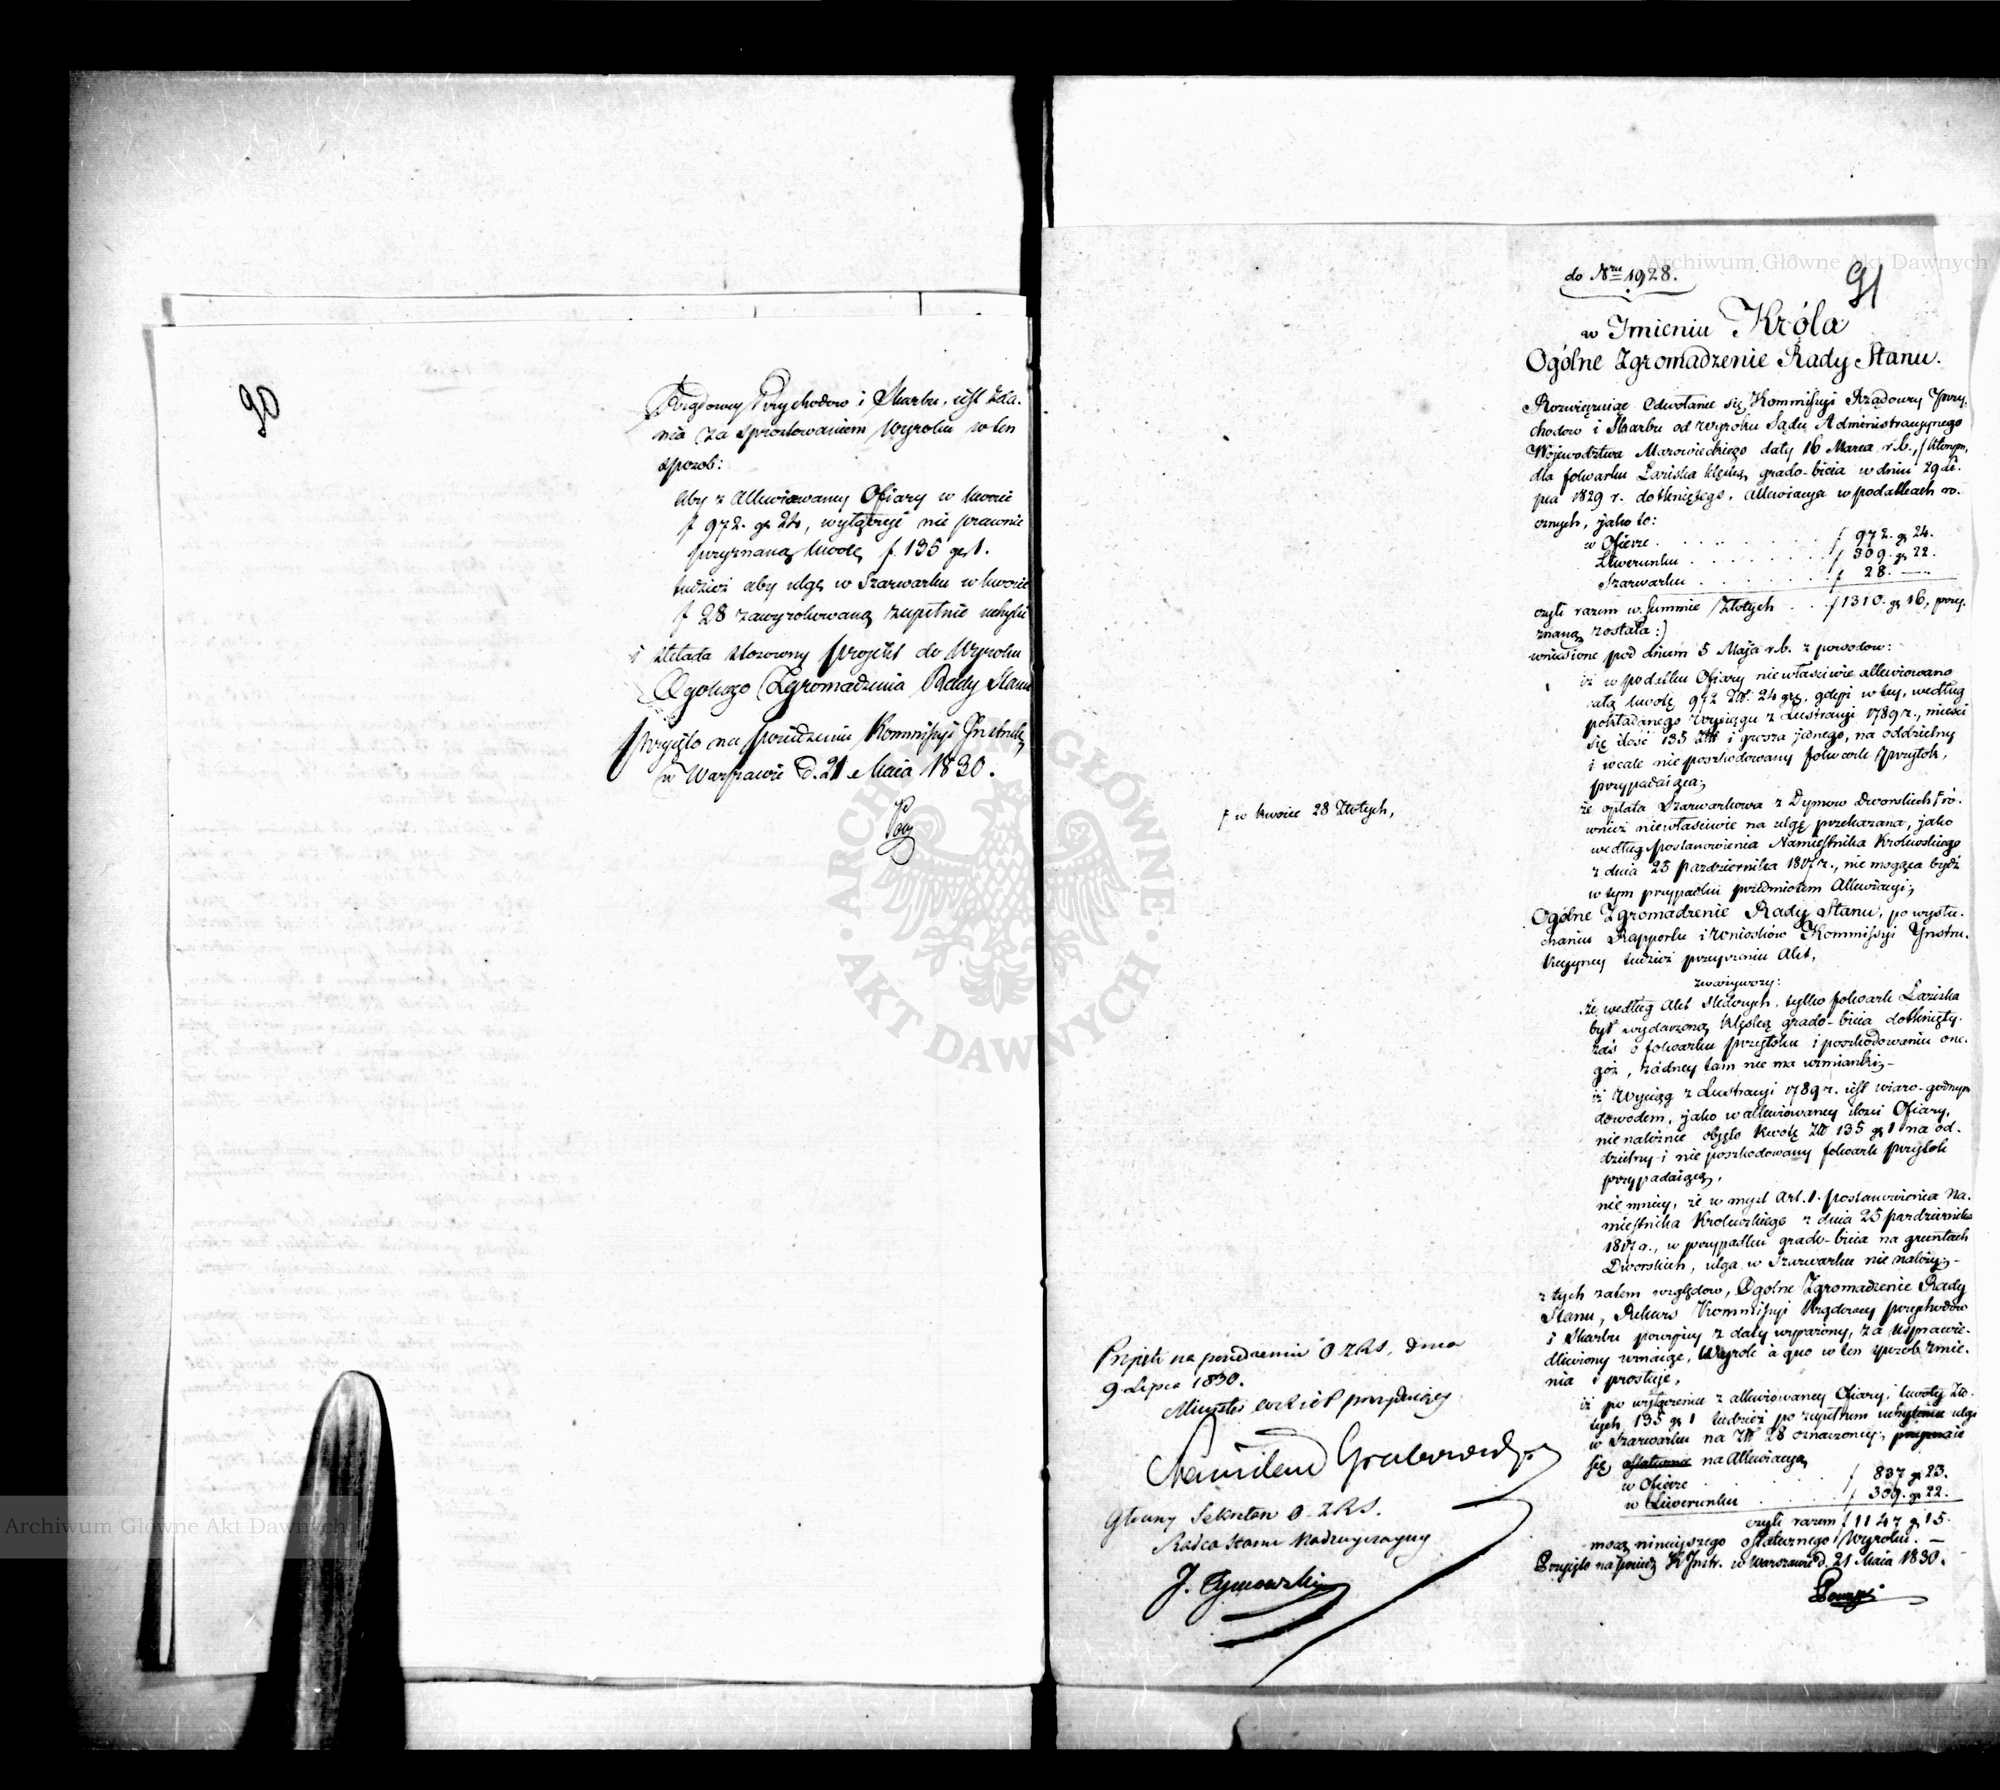 90
Rządowey Przychodow i Skarbu, iest zda-
nia za sprostowaniem Wyroku w ten
sposob:
aby z allewiowaney Ofiary w kwocie
f 972. gr 24, wyłączyć nie prawnie
przyznaną kwotę f. 135 gr 1.
tudzież aby ulgę w Szarwarku w kwocie
f 28 zawyrokowaną zupełnie uchylić
i składa stosowny projekt do Wyroku
Ogolnego Zgromadzenia Rady Stanu
Przyięto na posiedzeniu Kommissyi Instruk.
w Warszawie d. 21 Maia 1830.
do Nru 1928.
91
w Imieniu Króla
Ogólne Zgromadzenie Rady Stanu.
Rozwiązuiąc Odwołanie się Kommissyi Rządowey Przy-
chodow i Skarbu od Wyroku Sądu Administracyynego
Województwa Mazowieckiego daty 16 Marca r.b., /:którym,
dla folwarku Łaziska klęską grado-bicia w dniu 29 Li-
pca 1829 r. dotkniętego, allewiacya w podatkach ro-
cznych, jako to:
w Ofierze . . . f 972. gr 24.
Liwerunku . . . f 309. gr 22.
Szarwarku . . . f 28. —
czyli razem w Summie Złotych . . f 1310. gr 16, przy-
znaną została:/
wniesione pod dniem 5 Maja r.b. z powodow:
iż w podatku Ofiary niewłaściwie allewiowano
całą kwotę 972 Zł. 24 gr, gdyż w tey, według
pokładanego wyciągu z Lustracyi 1789 r., mieści
się ilość 135 Zł i grosza jednego, na oddzielny
i wcale nie poszkodowany folwark Przytok,
przypadaiąca;
że opłata Szarwarkowa z Dymow dworskich ró-
wnież niewłaściwie na ulgę przekazana, jako
według postanowienia Namiestnika Krolewskiego
z dnia 25 Pazdziernika 1817 r., nie mogąca bydź
w tym przypadku przedmiotem Allewiacyi;
Ogólne Zgromadzenie Rady Stanu, po wysłu-
chaniu Rapportu i wniosków Kommissyi Instru-
kcyyney tudzież przeyrzeniu Akt,
zważywszy:
że według Akt śledczych, tylko folwark Łaziska
był wydarzoną klęską grado-bicia dotknięty,
zaś o folwarku Przytoku i poszkodowaniu one-
goż, żadney tam nie ma wzmianki;-
iż Wyciąg z Lustracyi 1789 r. iest wiaro-godnym
dowodem, jako w allewiowaney ilości Ofiary,
nienależnie objęto kwotę Zł 135 gr 1 na od-
dzielny i nie poszkodowany folwark Przytok
przypadaiącą,
nie mniey, że w myśl Art. 1. postanowienia Na-
miestnika Krolewskiego z dnia 25 Pazdziernika
1817 r., w przypadku grado-bicia na gruntach
Dworskich, ulga w Szarwarku nie należy;-
z tych zatem względow, Ogolne Zgromadzenie Rady
Stanu, Rekurs Kommissyi Rządowey Przychodów
i Skarbu powyżey z daty wyrażony, za usprawie-
dliwiony uznaiąc, Wyrok a quo w ten sposób zmie-
nia i prostuje,
iż po wyłączeniu z allewiowaney Ofiary, kwoty Zło-
tych 135 gr 1 tudzież po zupełnem uchyleniu ulgi
w Szarwarku na Zł 28 oznaczoney, przyznaie
się ostatecznie na Allewiacyą
w Ofierze . . . f 837 gr 23.
w Liwerunku . . . f 309. gr 22.
czyli razem f 1147 gr 15.
mocą ninieyszego ostatecznego Wyroku. —
Przyięto na posiedz K. Instr. w Warszawie d. 21 Maia 1830.
f w kwocie 28 Złotych,
Przyięte na posiedzeniu O Z R S, dnia
9 Lipca 1830.
Minister prezyduiący
Stanisław Grabowski
Głowny Sekretarz O. Z R S.
Radca Stanu Nadzwyczayny
J. Tymowski
ARCHIWUM GŁÓWNE AKT DAWNYCH
Archiwum Główne Akt Dawnych
Archiwum Główne Akt Dawnych